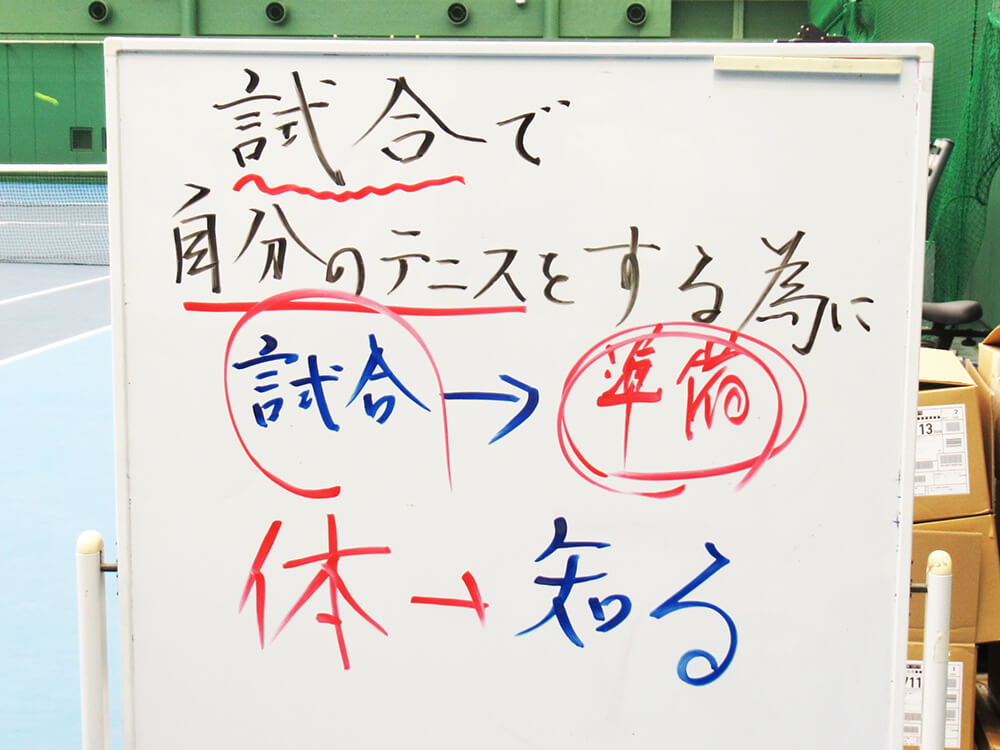 試合で
自分のテニスをする為に
試合→準備
体→知る
13
711